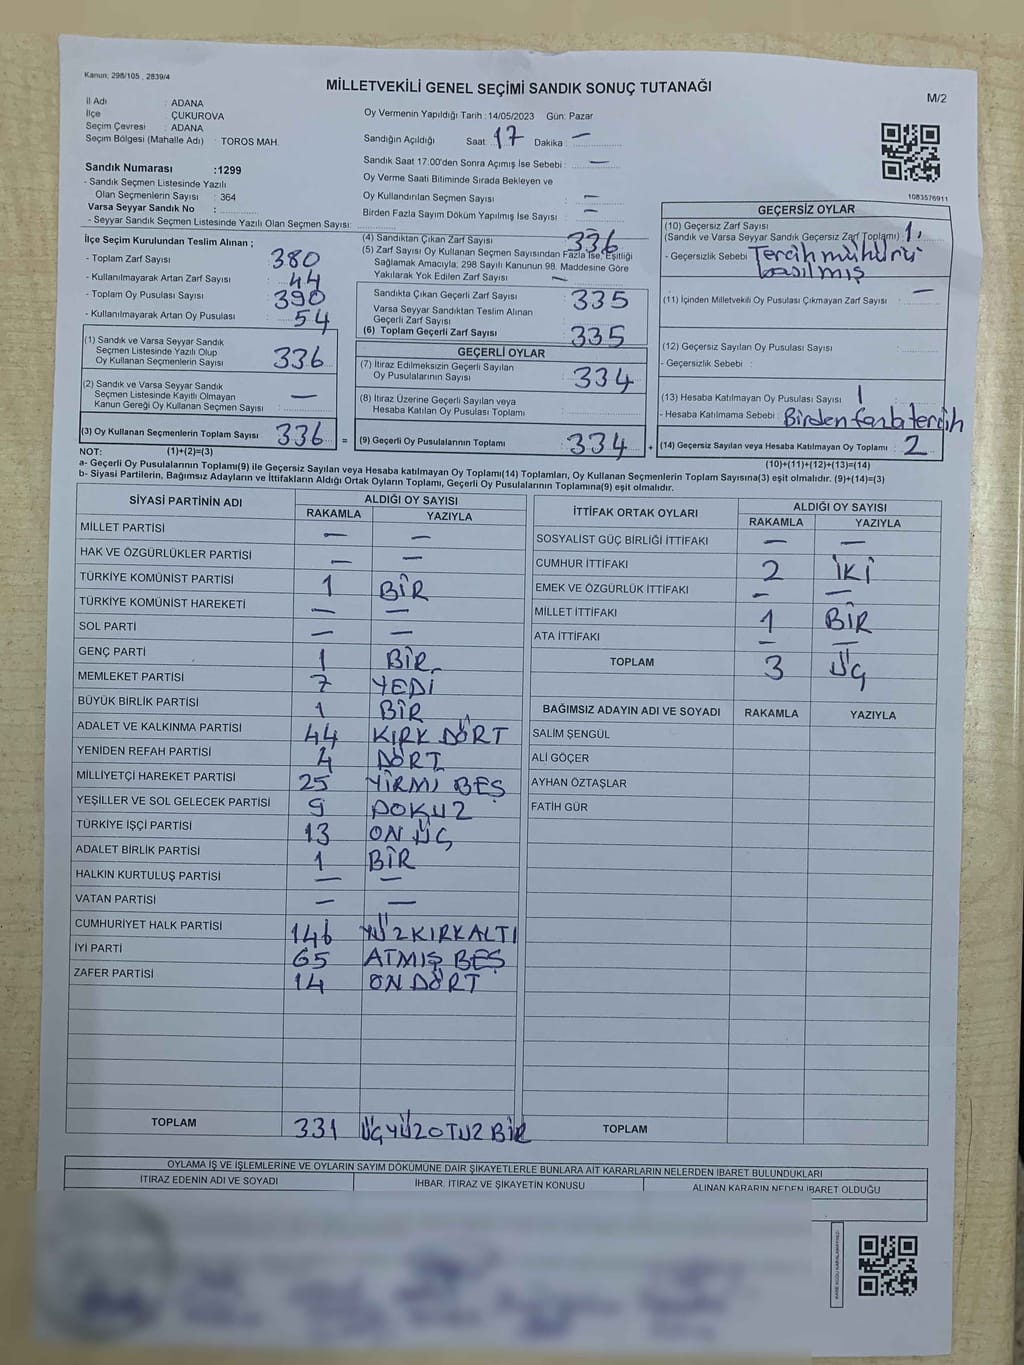 Kanun: 298/105 , 2839/4
MİLLETVEKİLİ GENEL SEÇİMİ SANDIK SONUÇ TUTANAĞI
M/2
İl Adı : ADANA
İlçe : ÇUKUROVA
Seçim Çevresi : ADANA
Seçim Bölgesi (Mahalle Adı) : TOROS MAH.
Sandık Numarası :1299
- Sandık Seçmen Listesinde Yazılı
Olan Seçmenlerin Sayısı : 364
Varsa Seyyar Sandık No :
- Seyyar Sandık Seçmen Listesinde Yazılı Olan Seçmen Sayısı:
Oy Vermenin Yapıldığı Tarih :14/05/2023 Gün: Pazar
Sandığın Açıldığı Saat: 17 Dakika : —
Sandık Saat 17:00'den Sonra Açımış İse Sebebi : —
Oy Verme Saati Bitiminde Sırada Bekleyen ve
Oy Kullandırılan Seçmen Sayısı : —
Birden Fazla Sayım Döküm Yapılmış İse Sayısı : —
1083576911
İlçe Seçim Kurulundan Teslim Alınan ;
- Toplam Zarf Sayısı : 380
- Kullanılmayarak Artan Zarf Sayısı : 44
- Toplam Oy Pusulası Sayısı : 390
- Kullanılmayarak Artan Oy Pusulası : 54
(1) Sandık ve Varsa Seyyar Sandık
Seçmen Listesinde Yazılı Olup
Oy Kullanan Seçmenlerin Sayısı : 336
(2) Sandık ve Varsa Seyyar Sandık
Seçmen Listesinde Kayıtlı Olmayan
Kanun Gereği Oy Kullanan Seçmen Sayısı : —
(3) Oy Kullanan Seçmenlerin Toplam Sayısı : 336 =
(4) Sandıktan Çıkan Zarf Sayısı : 336
(5) Zarf Sayısı Oy Kullanan Seçmen Sayısından Fazla İse, Eşitliği
Sağlamak Amacıyla; 298 Sayılı Kanunun 98. Maddesine Göre
Yakılarak Yok Edilen Zarf Sayısı : —
Sandıkta Çıkan Geçerli Zarf Sayısı : 335
Varsa Seyyar Sandıktan Teslim Alınan
Geçerli Zarf Sayısı :
(6) Toplam Geçerli Zarf Sayısı : 335
GEÇERLİ OYLAR
(7) İtiraz Edilmeksizin Geçerli Sayılan
Oy Pusulalarının Sayısı : 334
(8) İtiraz Üzerine Geçerli Sayılan veya
Hesaba Katılan Oy Pusulası Toplamı :
(9) Geçerli Oy Pusulalarının Toplamı : 334 +
GEÇERSİZ OYLAR
(10) Geçersiz Zarf Sayısı
(Sandık ve Varsa Seyyar Sandık Geçersiz Zarf Toplamı) : 1
- Geçersizlik Sebebi : Tercih mühürü
basılmış
(11) İçinden Milletvekili Oy Pusulası Çıkmayan Zarf Sayısı : —
(12) Geçersiz Sayılan Oy Pusulası Sayısı :
- Geçersizlik Sebebi :
(13) Hesaba Katılmayan Oy Pusulası Sayısı : 1
- Hesaba Katılmama Sebebi : Birden fazla tercih
(14) Geçersiz Sayılan veya Hesaba Katılmayan Oy Toplamı : 2
NOT: (1)+(2)=(3)
(10)+(11)+(12)+(13)=(14)
a- Geçerli Oy Pusulalarının Toplamı(9) ile Geçersiz Sayılan veya Hesaba katılmayan Oy Toplamı(14) Toplamları, Oy Kullanan Seçmenlerin Toplam Sayısına(3) eşit olmalıdır. (9)+(14)=(3)
b- Siyasi Partilerin, Bağımsız Adayların ve İttifakların Aldığı Ortak Oyların Toplamı, Geçerli Oy Pusulalarının Toplamına(9) eşit olmalıdır.
SİYASİ PARTİNİN ADI ALDIĞI OY SAYISI
RAKAMLA YAZIYLA
MİLLET PARTİSİ — —
HAK VE ÖZGÜRLÜKLER PARTİSİ — —
TÜRKİYE KOMÜNİST PARTİSİ 1 BİR
TÜRKİYE KOMÜNİST HAREKETİ — —
SOL PARTİ — —
GENÇ PARTİ 1 BİR
MEMLEKET PARTİSİ 7 YEDİ
BÜYÜK BİRLİK PARTİSİ 1 BİR
ADALET VE KALKINMA PARTİSİ 44 KIRK DÖRT
YENİDEN REFAH PARTİSİ 4 DÖRT
MİLLİYETÇİ HAREKET PARTİSİ 25 YİRMİ BEŞ
YEŞİLLER VE SOL GELECEK PARTİSİ 9 DOKUZ
TÜRKİYE İŞÇİ PARTİSİ 13 ON ÜÇ
ADALET BİRLİK PARTİSİ 1 BİR
HALKIN KURTULUŞ PARTİSİ — —
VATAN PARTİSİ — —
CUMHURİYET HALK PARTİSİ 146 YÜZKIRKALTI
İYİ PARTİ 65 ATMIŞ BEŞ
ZAFER PARTİSİ 14 ON DÖRT
TOPLAM 331 ÜÇYÜZOTUZ BİR
İTTİFAK ORTAK OYLARI ALDIĞI OY SAYISI
RAKAMLA YAZIYLA
SOSYALİST GÜÇ BİRLİĞİ İTTİFAKI — —
CUMHUR İTTİFAKI 2 İKİ
EMEK VE ÖZGÜRLÜK İTTİFAKI — —
MİLLET İTTİFAKI 1 BİR
ATA İTTİFAKI — —
TOPLAM 3 ÜÇ
BAĞIMSIZ ADAYIN ADI VE SOYADI RAKAMLA YAZIYLA
SALİM ŞENGÜL
ALİ GÖÇER
AYHAN ÖZTAŞLAR
FATİH GÜR
TOPLAM
OYLAMA İŞ VE İŞLEMLERİNE VE OYLARIN SAYIM DÖKÜMÜNE DAİR ŞİKAYETLERLE BUNLARA AİT KARARLARIN NELERDEN İBARET BULUNDUKLARI
İTİRAZ EDENİN ADI VE SOYADI İHBAR, İTİRAZ VE ŞİKAYETİN KONUSU ALINAN KARARIN NEDEN İBARET OLDUĞU